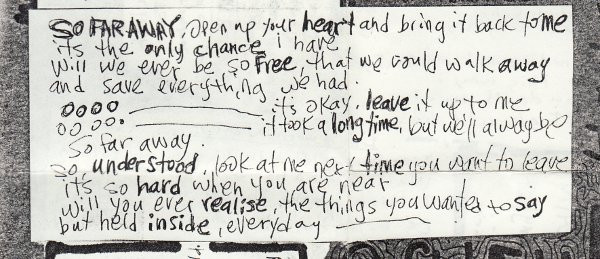 SO FAR AWAY, open up your heart and bring it back to me
its the only chance i have
will we ever be so free, that we could walk away
and save everything we had.
oooo it's okay, leave it up to me
oooo. it took a long time, but we'll alway be
so far away.
so, understood, look at me next time you want to leave
it's so hard when you are near
will you ever realise, the things you wanted to say
but held inside, everyday